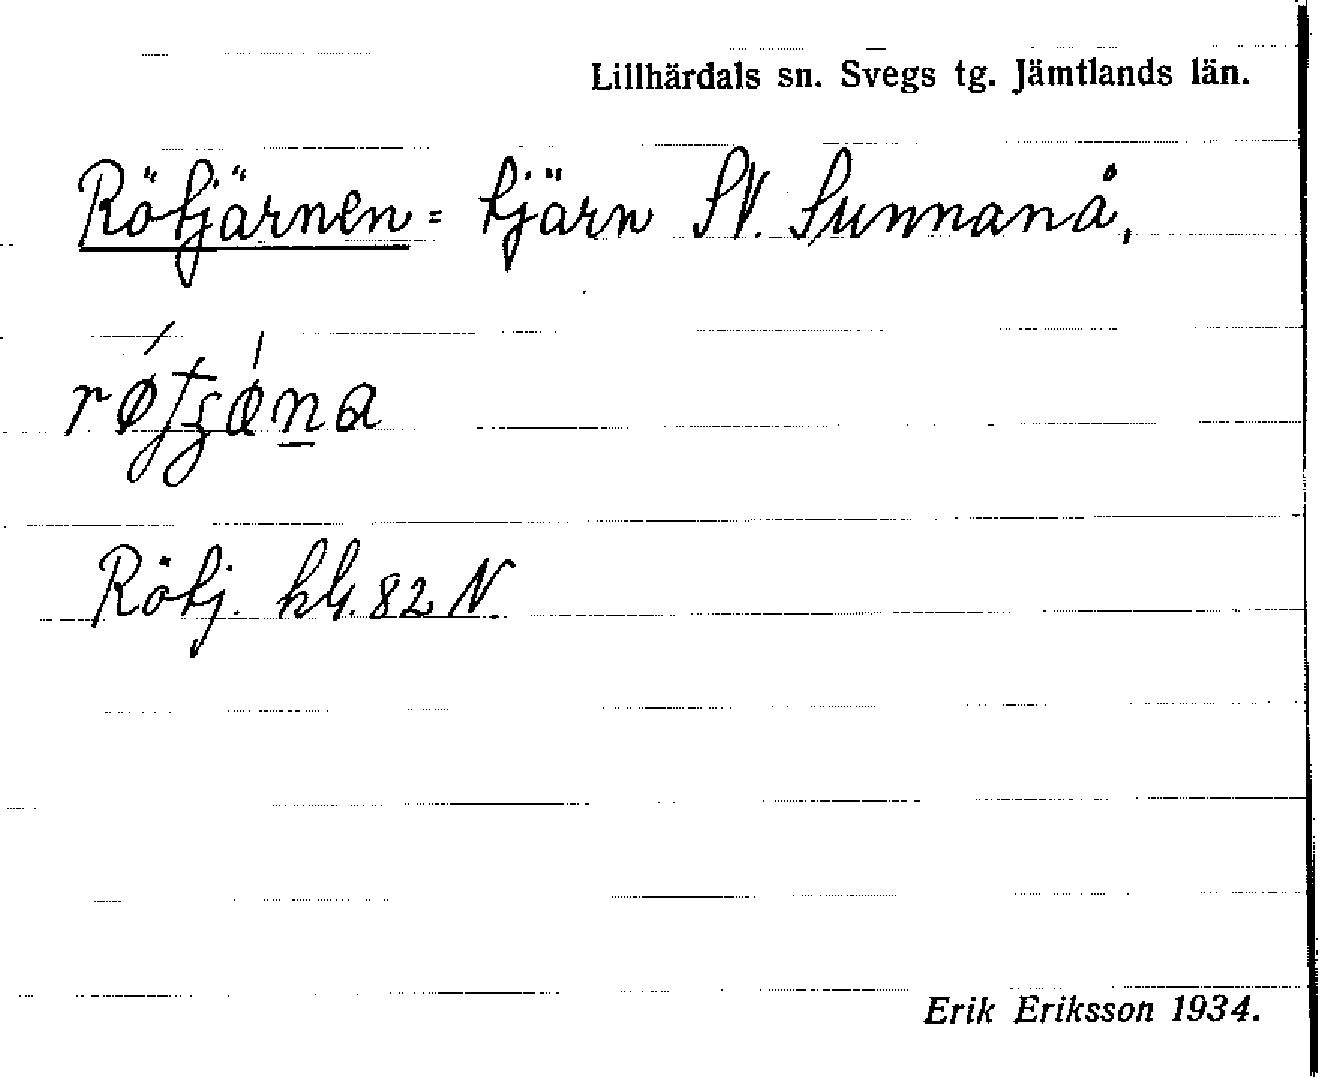 Lillhärdals sn. Svegs tg. Jämtlands län.
Rötjärnen = tjärn SV. Sunnanå,
Rötj. kbl. 82 N.
Erik Eriksson 1934.